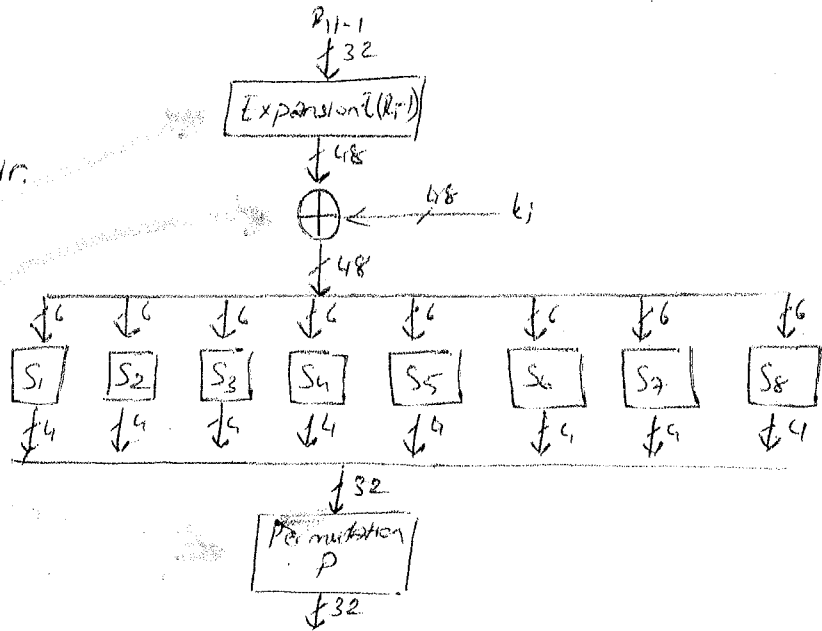 R i-1
32
Expansion E(Ri-1)
48
48 ki
48
6 6 6 6 6 6 6 6
S1 S2 S3 S4 S5 S6 S7 S8
4 4 4 4 4 4 4 4
32
Permutation
P
32